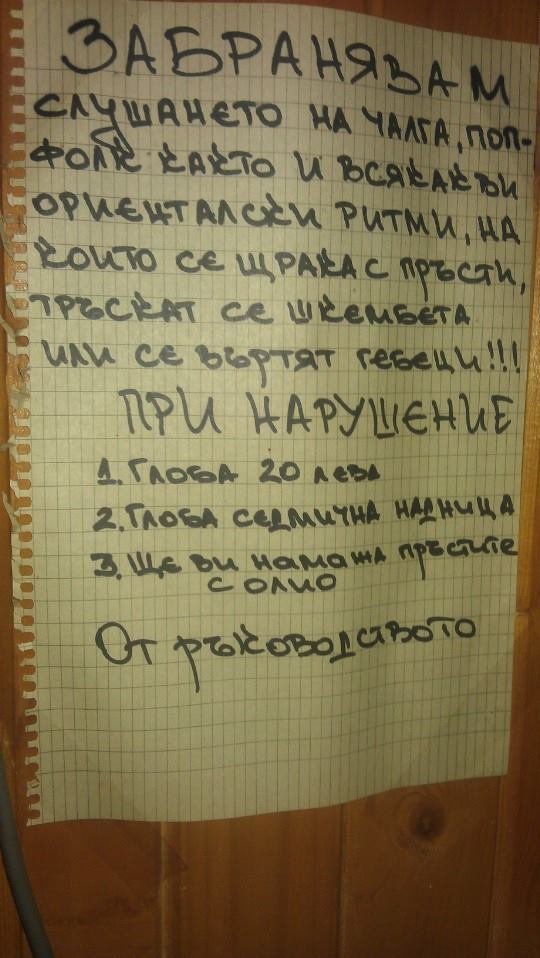 ЗАБРАНЯВАМ
СЛУШАНЕТО НА ЧАЛГА, ПОП-
ФОЛК КАКТО И ВСЯКАКВИ
ОРИЕНТАЛСКИ РИТМИ, НА
КОИТО СЕ ЩРАКА С ПРЪСТИ,
ТРЪСКАТ СЕ ШКЕМБЕТА
ИЛИ СЕ ВЪРТЯТ ГЕБЕЦИ!!!
ПРИ НАРУШЕНИЕ
1. ГЛОБА 20 ЛЕВА
2. ГЛОБА СЕДМИЧНА НАДНИЦА
3. ЩЕ ВИ НАМАЖА ПРЪСТИТЕ
С ОЛИО
ОТ РЪКОВОДСТВОТО